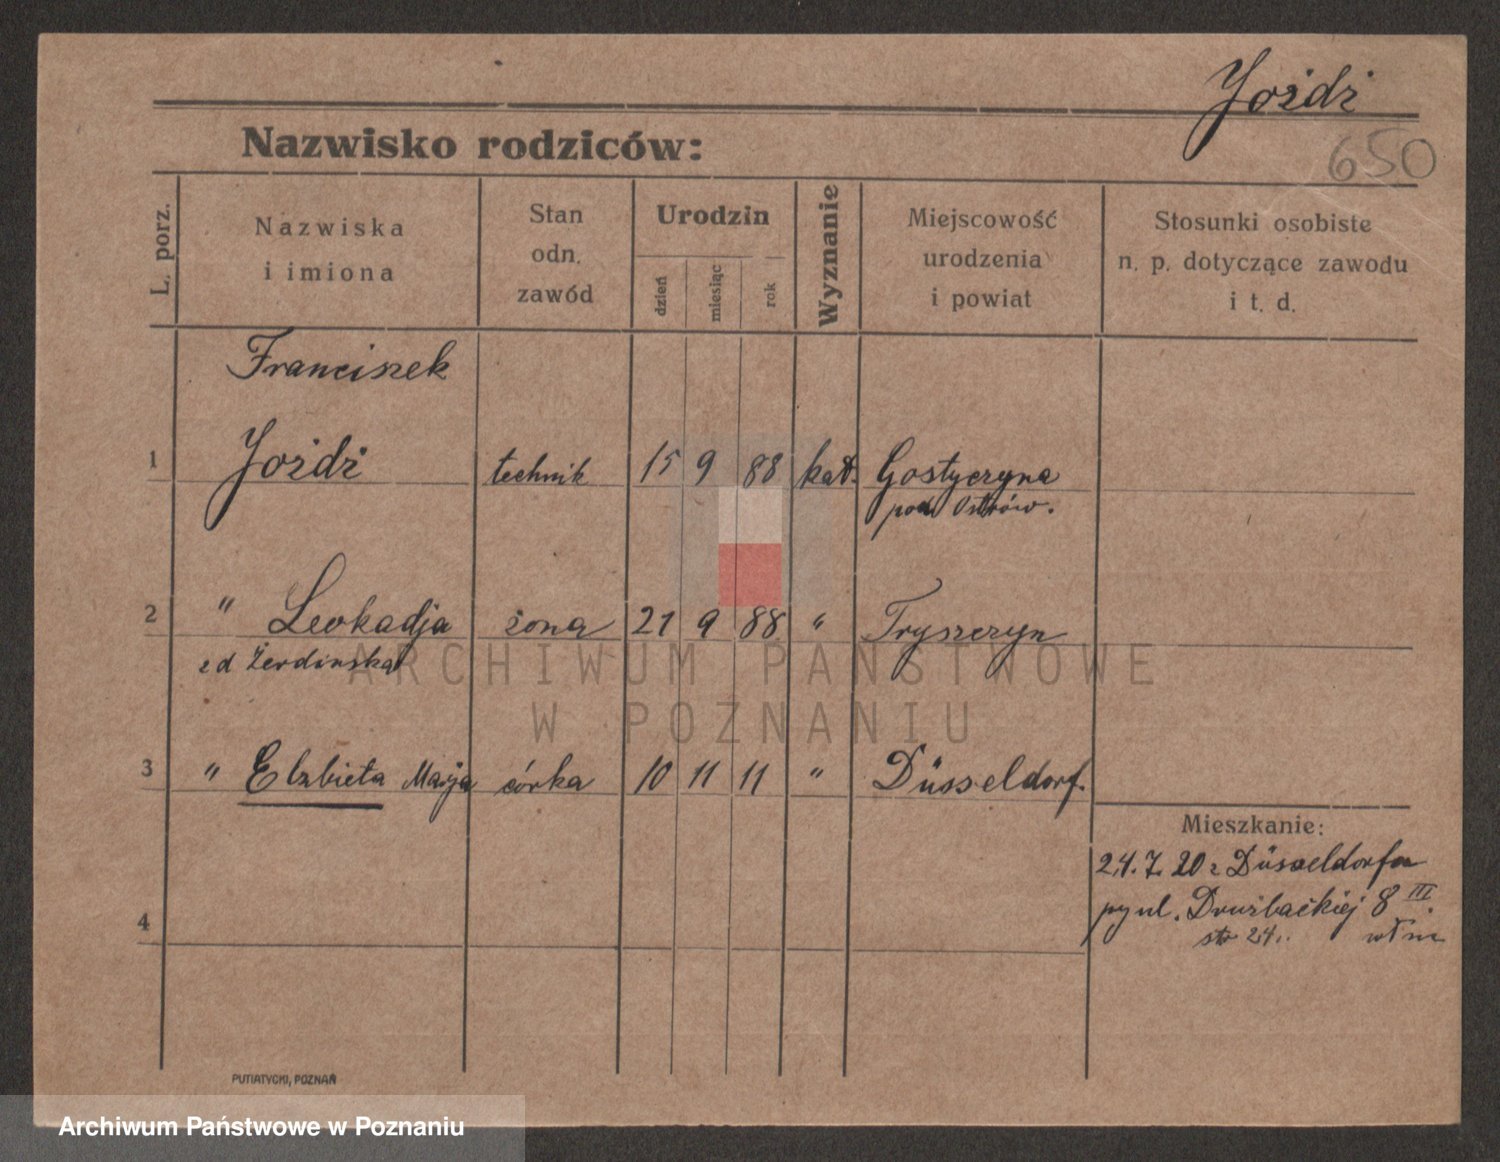 Jożdż
650
Nazwisko rodziców:
L. porz.
Nazwiska
i imiona
Stan
odn.
zawód
Urodzin
dzień
miesiąc
rok
Wyznanie
Miejscowość
urodzenia
i powiat
Stosunki osobiste
n. p. dotyczące zawodu
i t. d.
Franciszek
1 Jożdż technik 15 9 88 kat. Gostyczyna
pod Ostrów.
2 " Leokadja żona 21 9 88 " Tryszczyn
z d Żerdinska
ARCHIWUM PAŃSTWOWE
W POZNANIU
3 " Elzbieta Marja córka 10 11 11 " Düsseldorf.
Mieszkanie:
24. 7. 20 z Düsseldorfu
ul. Drużbackiej 8 III.
str 24.
4
PUTIATYCKI, POZNAŃ
Archiwum Państwowe w Poznaniu